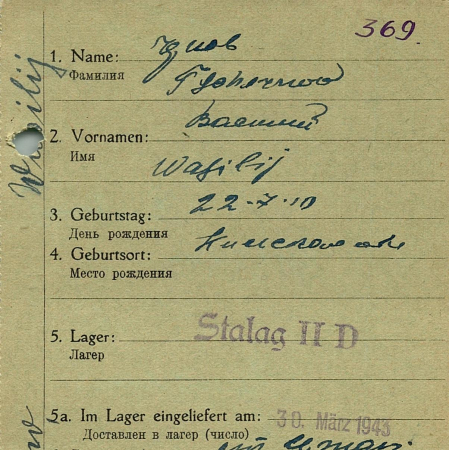 369.
1. Name:
Фамилия
Tschernow
Василий
2. Vornamen:
Имя
Waſilij
3. Geburtstag: 22-7-10
День рождения
4. Geburtsort:
Место рождения
5. Lager: Stalag II D
Лагерь
5a. Im Lager eingeliefert am: 30. März 1943
Доставлен в лагерь (число)
Wasilij